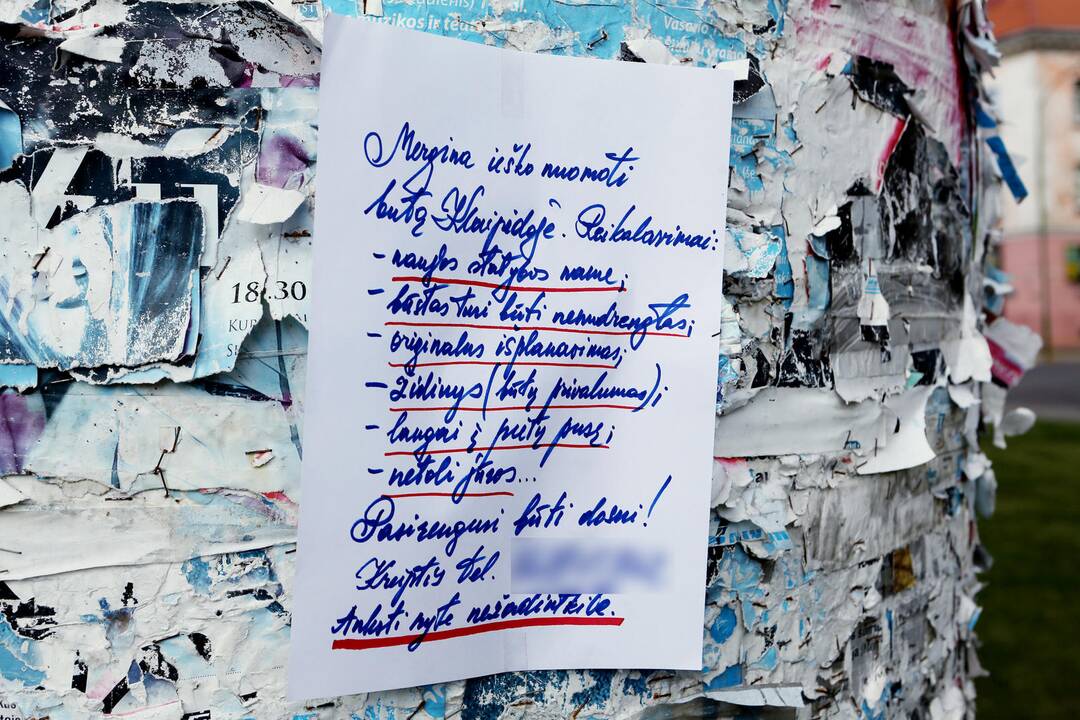 muzikos ir tea
Vasario
18.30
Mergina ieško nuomoti
butą Klaipėdoje. Reikalavimai:
- naujos statybos name;
- būstas turi būti nenudrengtas;
- originalus išplanavimas;
- židinys (būtų privalumas);
- langai į pietų pusę;
- netoli jūros...
Pasirengusi būti dosni!
Kreiptis tel.
Anksti ryte nežadinkite.